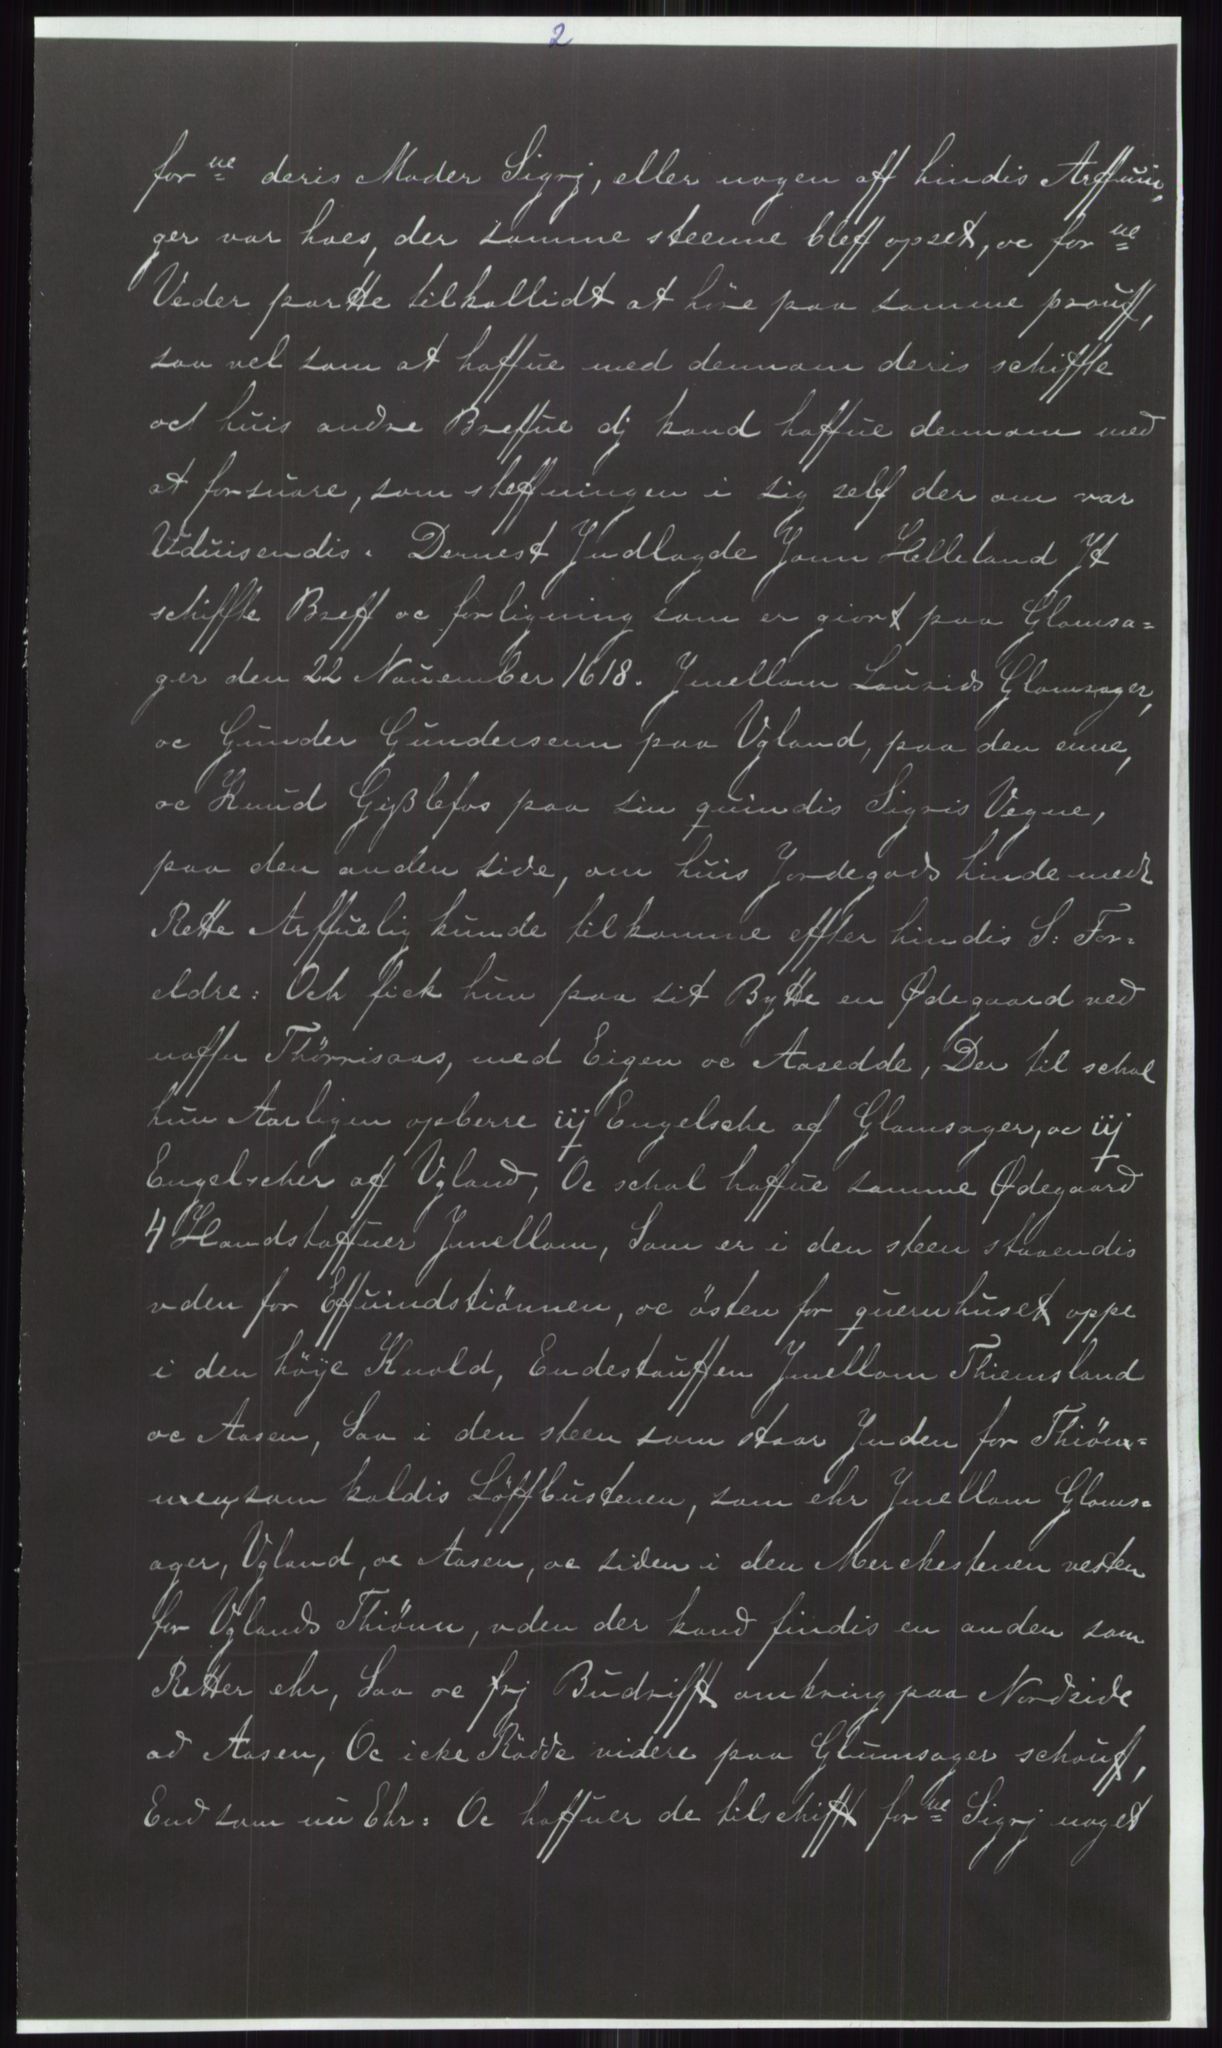 2
for<sup>ne</sup> deris Moder Sigrj, eller nogen aff hindis Arffuin,
ger var hoes, der samme steenne bleff opset, oc for<sup>ne</sup>
Veder partte tilkallidt at höre paa samme prouff,
saa vel som at haffue med dennom deris schiffte
oct huis andre Breffue dj kand haffue dennom med
at forsuare, som steffningen i sig self der om var
Vduisendis. Dernest Jndlagde Jonn Helleland Jt
schiffte Breff oc forligning som er giort paa Glomsa=
ger den 22 Nouember 1618. Jmellom Laurids Glomsager,
oc Gunder Gundersenn paa Vgland, paa den enne,
oc Knud Gißlefos paa sin quindis Sigris Vegne,
paa den anden side, om huis Jordegods hinde medt
Rette Arffuelig kunde tilkomme effter hindis S: For=
eldre: Och fick hun paa sit Bytte en Ødegaard ved
naffn Thörrisaas, med Eigen oc Aasedde, Der til schal
hun Aarligen opberre iij Engelsche af Glomsager, oc iij
Engelscher aff Vgland, Oc schal haffue samme Ødegaard
4 Handstaffuer Jmellom, Som er i den steen staaendis
vden for Effuindstiönnen, oc östen for quernhuset oppe
i den höye Knold, Endestauffen Jmellom Thiemsland
oc Aasen, Saa i den steen som staar Jnden for Thiönn=
nen, som kaldis Löffbustenen, som ehr Jmellom Gloms=
ager, Vgland, oc Aasen, oc siden i den Merckestenen vesten
for Vglands Thiönn, vden der kand findis en anden som
Retter ehr, Saa oc frj Budrifft omkring paa Nordside
ad Aasen, Oc icke Rödde videre paa Glumsager schouff,
End som nu Ehr: Oc haffuer de tilschifft for<sup>ne</sup> Sigrj noget